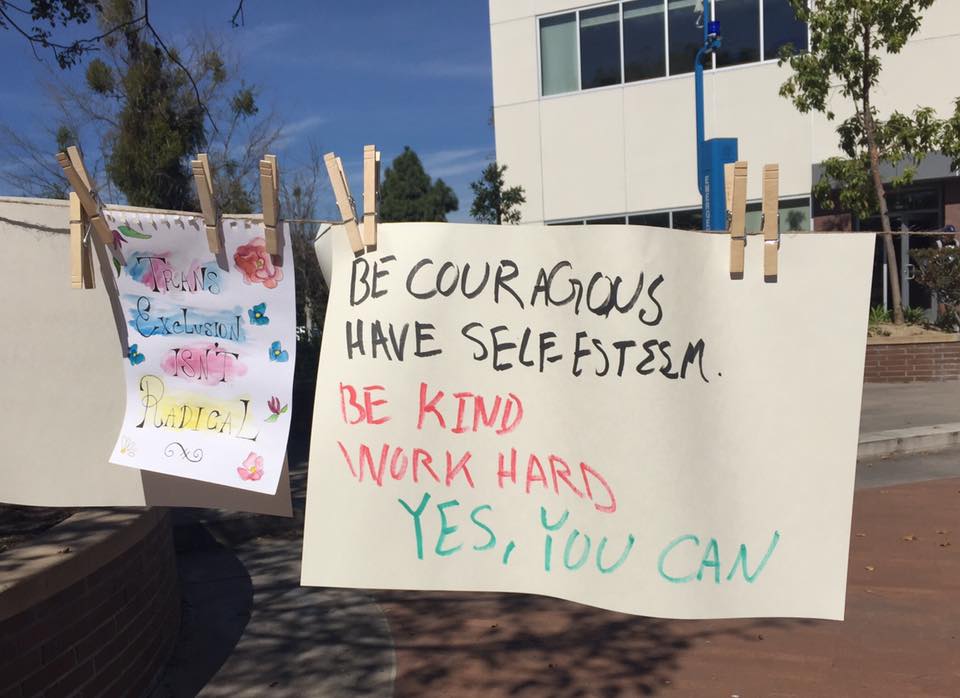 TRANS
EXCLUSION
ISN'T
RADICAL
BE COURAGOUS
HAVE SELF ESTEEM.
BE KIND
WORK HARD
YES, YOU CAN